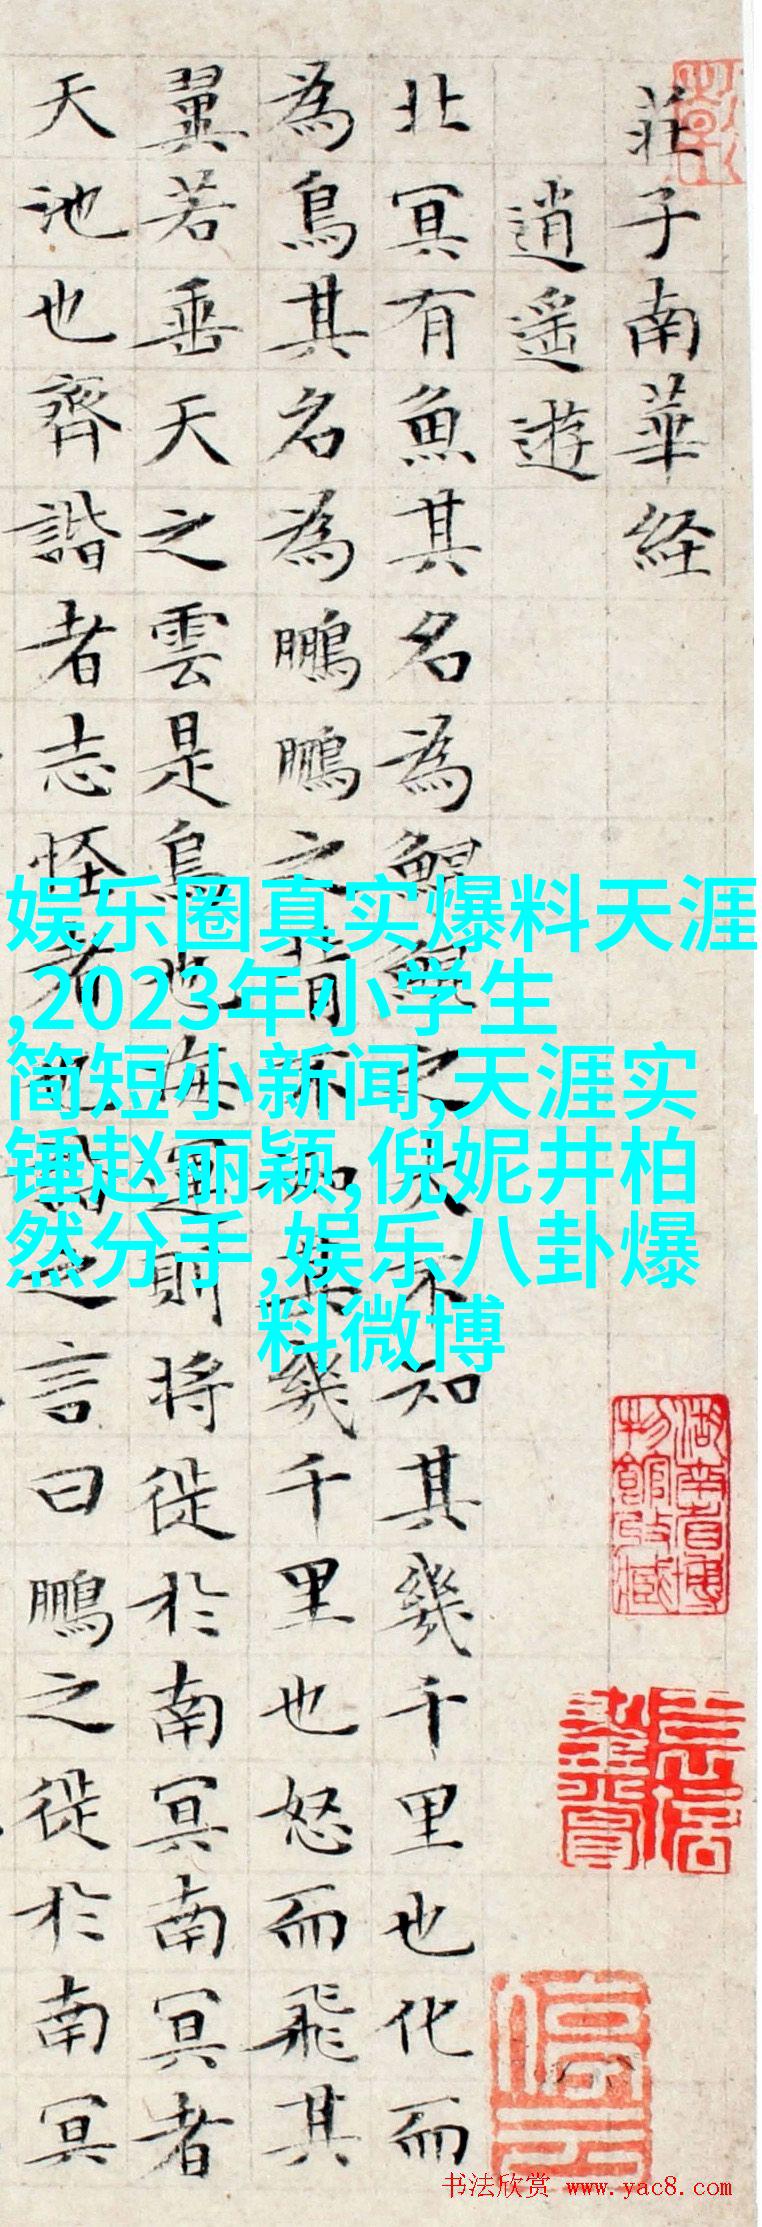 莊子南華経
逍遥遊
北冥有魚其名為鯤鯤之大不知其幾千里也化而
為鳥其名為鵬鵬之背不知其幾千里也怒而飛其
翼若垂天之雲是鳥也海運則将徙於南冥南冥者
天池也齊諧者志怪者也諧之言曰鵬之徙於南冥
娱乐圈真实爆料天涯
,2023年小学生
简短小新闻,天涯实
锤赵丽颖,倪妮井柏
然分手,娱乐八卦爆
料微博
湖南省博
物館收藏
书法欣赏 www.yac8.com